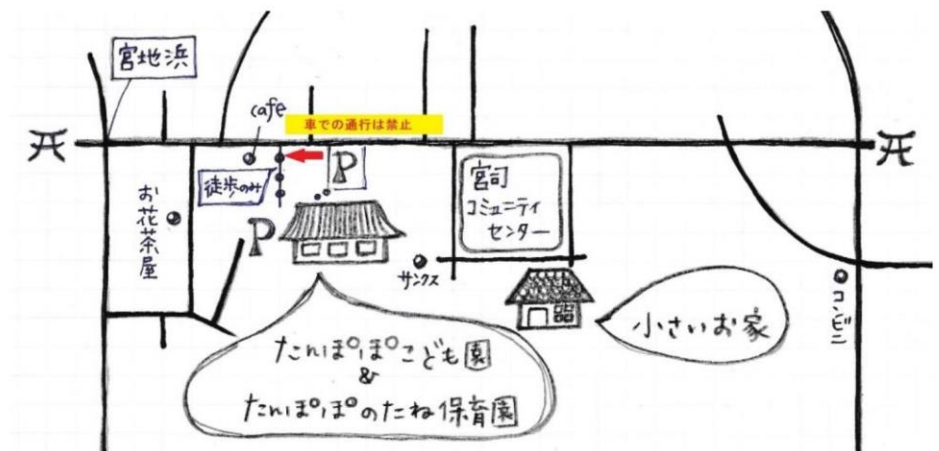 宮地浜
cafe
車での通行は禁止
徒歩のみ
P
P
お花茶屋
宮司
コミュニティ
センター
サンクス
小さいお家
コンビニ
たんぽぽこども園
&
たんぽぽのたね保育園